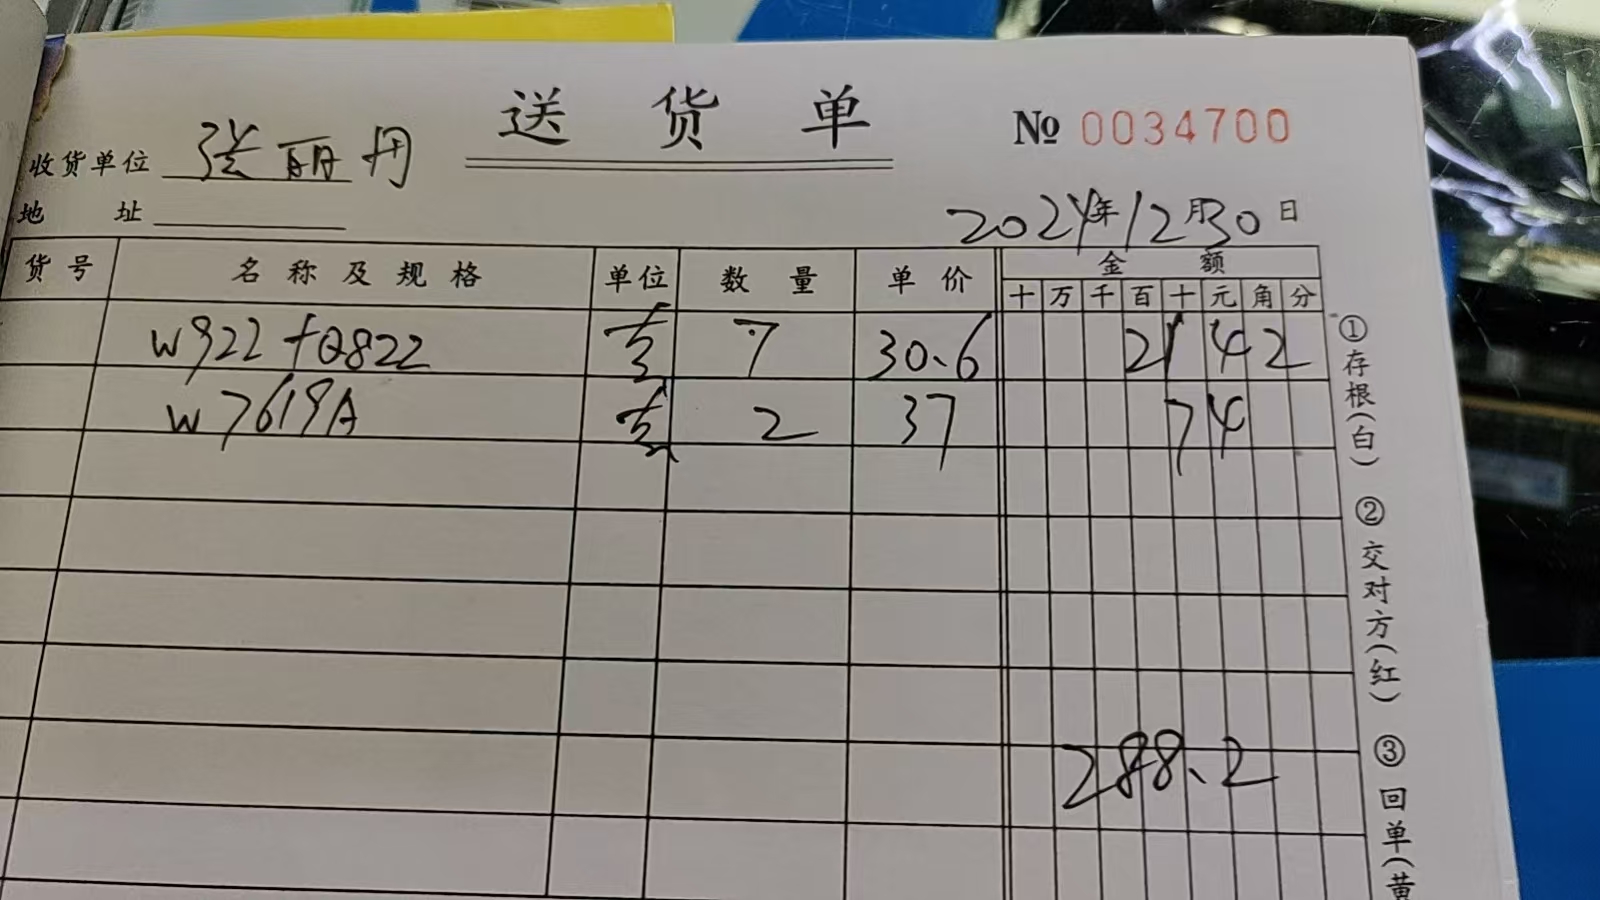 送货单 № 0034700
收货单位 张丽丹
地址 2024年12月30日
货号 名称及规格 单位 数量 单价 金额
十万千百十元角分
W922+Q822 套 7 30.6 2142
W7619A 套 2 37 74
288.2
①存根(白) ②交对方(红) ③回单(黄